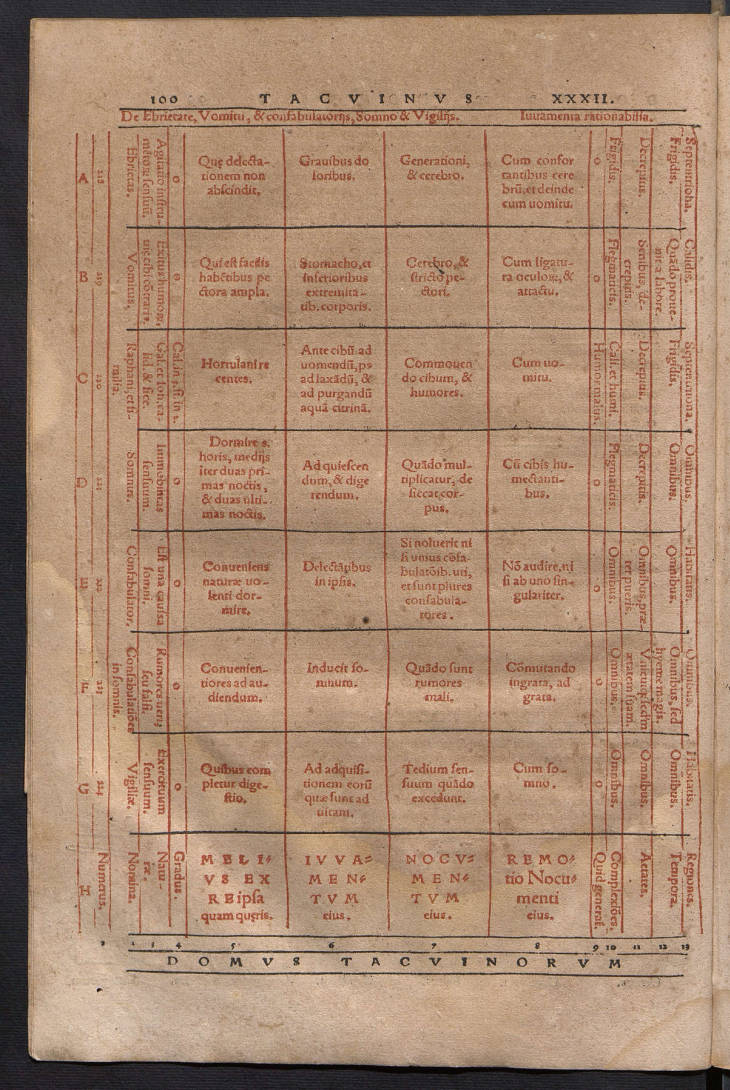 100 TACVINVS XXXII.
De Ebrietate, Vomitu, & confabulatorijs, Somno & Vigilijs. Iuuamenta rationabilia.
A
218
Ebrietas.
o
Quę delecta-
tionem non
abscindit.
Grauibus do
loribus.
Generationi,
& cerebro.
Cum confor
tantibus cere
brũ, et deinde
cum uomitu.
o
Frigidis.
Decrepitus.
Frigidis.
B
219
Vomitus,
o
Qui est facilis
habẽtibus pe
ctora ampla.
Stomacho, et
inferioribus
extremita-
tib. corporis.
Cerebro, &
stricto pe-
ctori.
Cum ligatu-
ra oculorꝝ, &
attactu.
o
Flegmaticis.
Senibus, de-
crepitis.
Quãdo proue-
nit a labore.
Calidis.
C
220
Raphani, et si-
milia.
Hortulani re
centes.
Ante cibũ ad
uomendũ, pꝰ
ad laxãdũ, &
ad purgandũ
aquã citrinã.
Commouen
do cibum, &
humores.
Cum uo-
mitu.
Humor malus.
Cali. et humi.
Decrepitis.
Frigidis.
D
221
Somnus.
Immobilitas
sensuum.
o
Dormire 8.
horis, medijs
iter duas pri-
mas noctis,
& duas ulti-
mas noctis.
Ad quiescen
dum, & dige
rendum.
Quãdo mul-
tiplicatur, de
siccat cor-
pus.
Cũ cibis hu-
mectanti-
bus.
o
Flegmaticis.
Decrepitis.
Omnibus.
Omnibus.
E
222
Confabulator.
Est una causa
somni.
o
Conueniens
naturæ uo-
lenti dor-
mire.
Delectãtibus
in ipsis.
Si noluerit ni
si unius cõfa-
bulatõib. uti,
et sunt plures
confabula-
tores.
Nõ audire, ni
si ab uno sin-
gulariter.
o
Omnibus.
Omnibus, præ-
ter pueris.
Omnibus.
Habitatis.
F
223
Confabulatiões
in somnis.
Rumores ueri,
seu falsi.
o
Conuenien-
tiores ad au-
diendum.
Inducit so-
mnum.
Quãdo sunt
rumores
mali.
Cõmutando
ingrata, ad
grata.
o
Omnibus.
ætatem suam.
Omnibus, sed
hyeme magis.
Omnibus.
G
224
Vigiliæ.
sensuum.
o
Quibus com
pletur dige-
stio.
Ad adquisi-
tionem eorũ
quæ sunt ad
uitam.
Tedium sen-
suum quãdo
excedunt.
Cum so-
mno.
o
Omnibus.
Omnibus.
Omnibus.
Habitatis.
H
Numerus.
Nomina.
Natu-
ræ.
Gradus.
MELI-
VS EX
RE ipsa
quam quęris.
IVVA-
MEN-
TVM
eius.
NOCV-
MEN-
TVM
eius.
REMO-
tio Nocu-
menti
eius.
Quid generat.
Complexiões.
Aetates.
Tempora.
Regiones.
2 3 4 5 6 7 8 9 10 11 12 13
DOMVS TACVINORVM